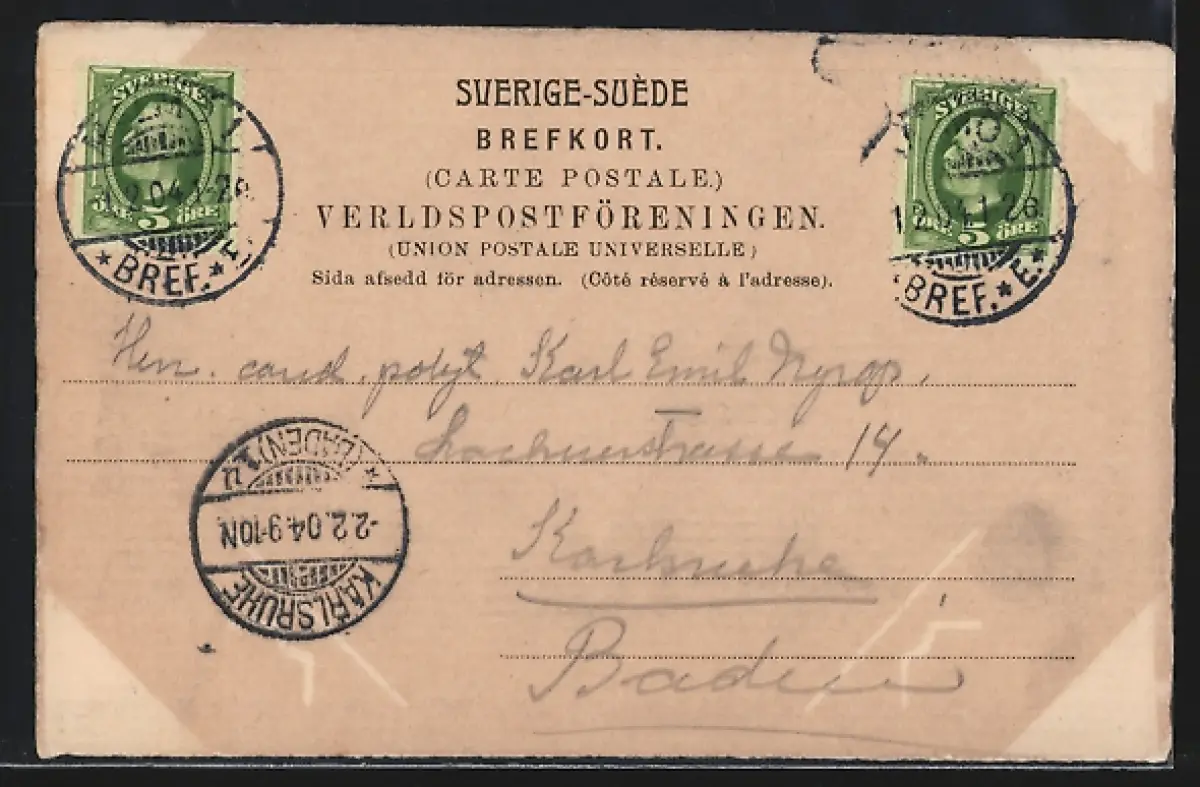 SVERIGE-SUÈDE
BREFKORT.
(CARTE POSTALE.)
VERLDSPOSTFÖRENINGEN.
(UNION POSTALE UNIVERSELLE)
Sida afsedd för adressen. (Côté réservé à l'adresse).
SVERIGE
5 ÖRE
1.2.04.1-2e.
*BREF.*E.
SVERIGE
5 ÖRE
1.2.04.1-2e.
BREF.*E.*
Herr. cand. polyt Karl Emil Nyrop,
strasse 14.
Karlsruhe
Baden
*(BADEN)1.
-2.2.04.9-10N
KARLSRUHE